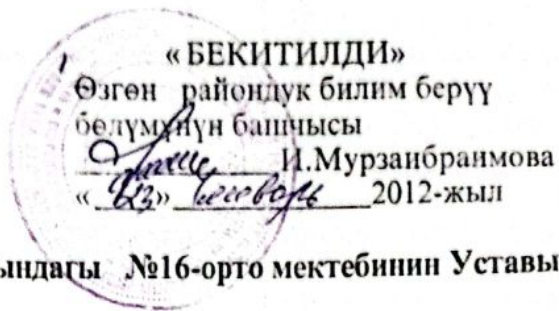 «БЕКИТИЛДИ»
Өзгөн районлук билим берүү
бөлүмүнүн башчысы
И.Мурзаибраимова
« 23» 2012-жыл
ындагы №16-орто мектебинин Уставы